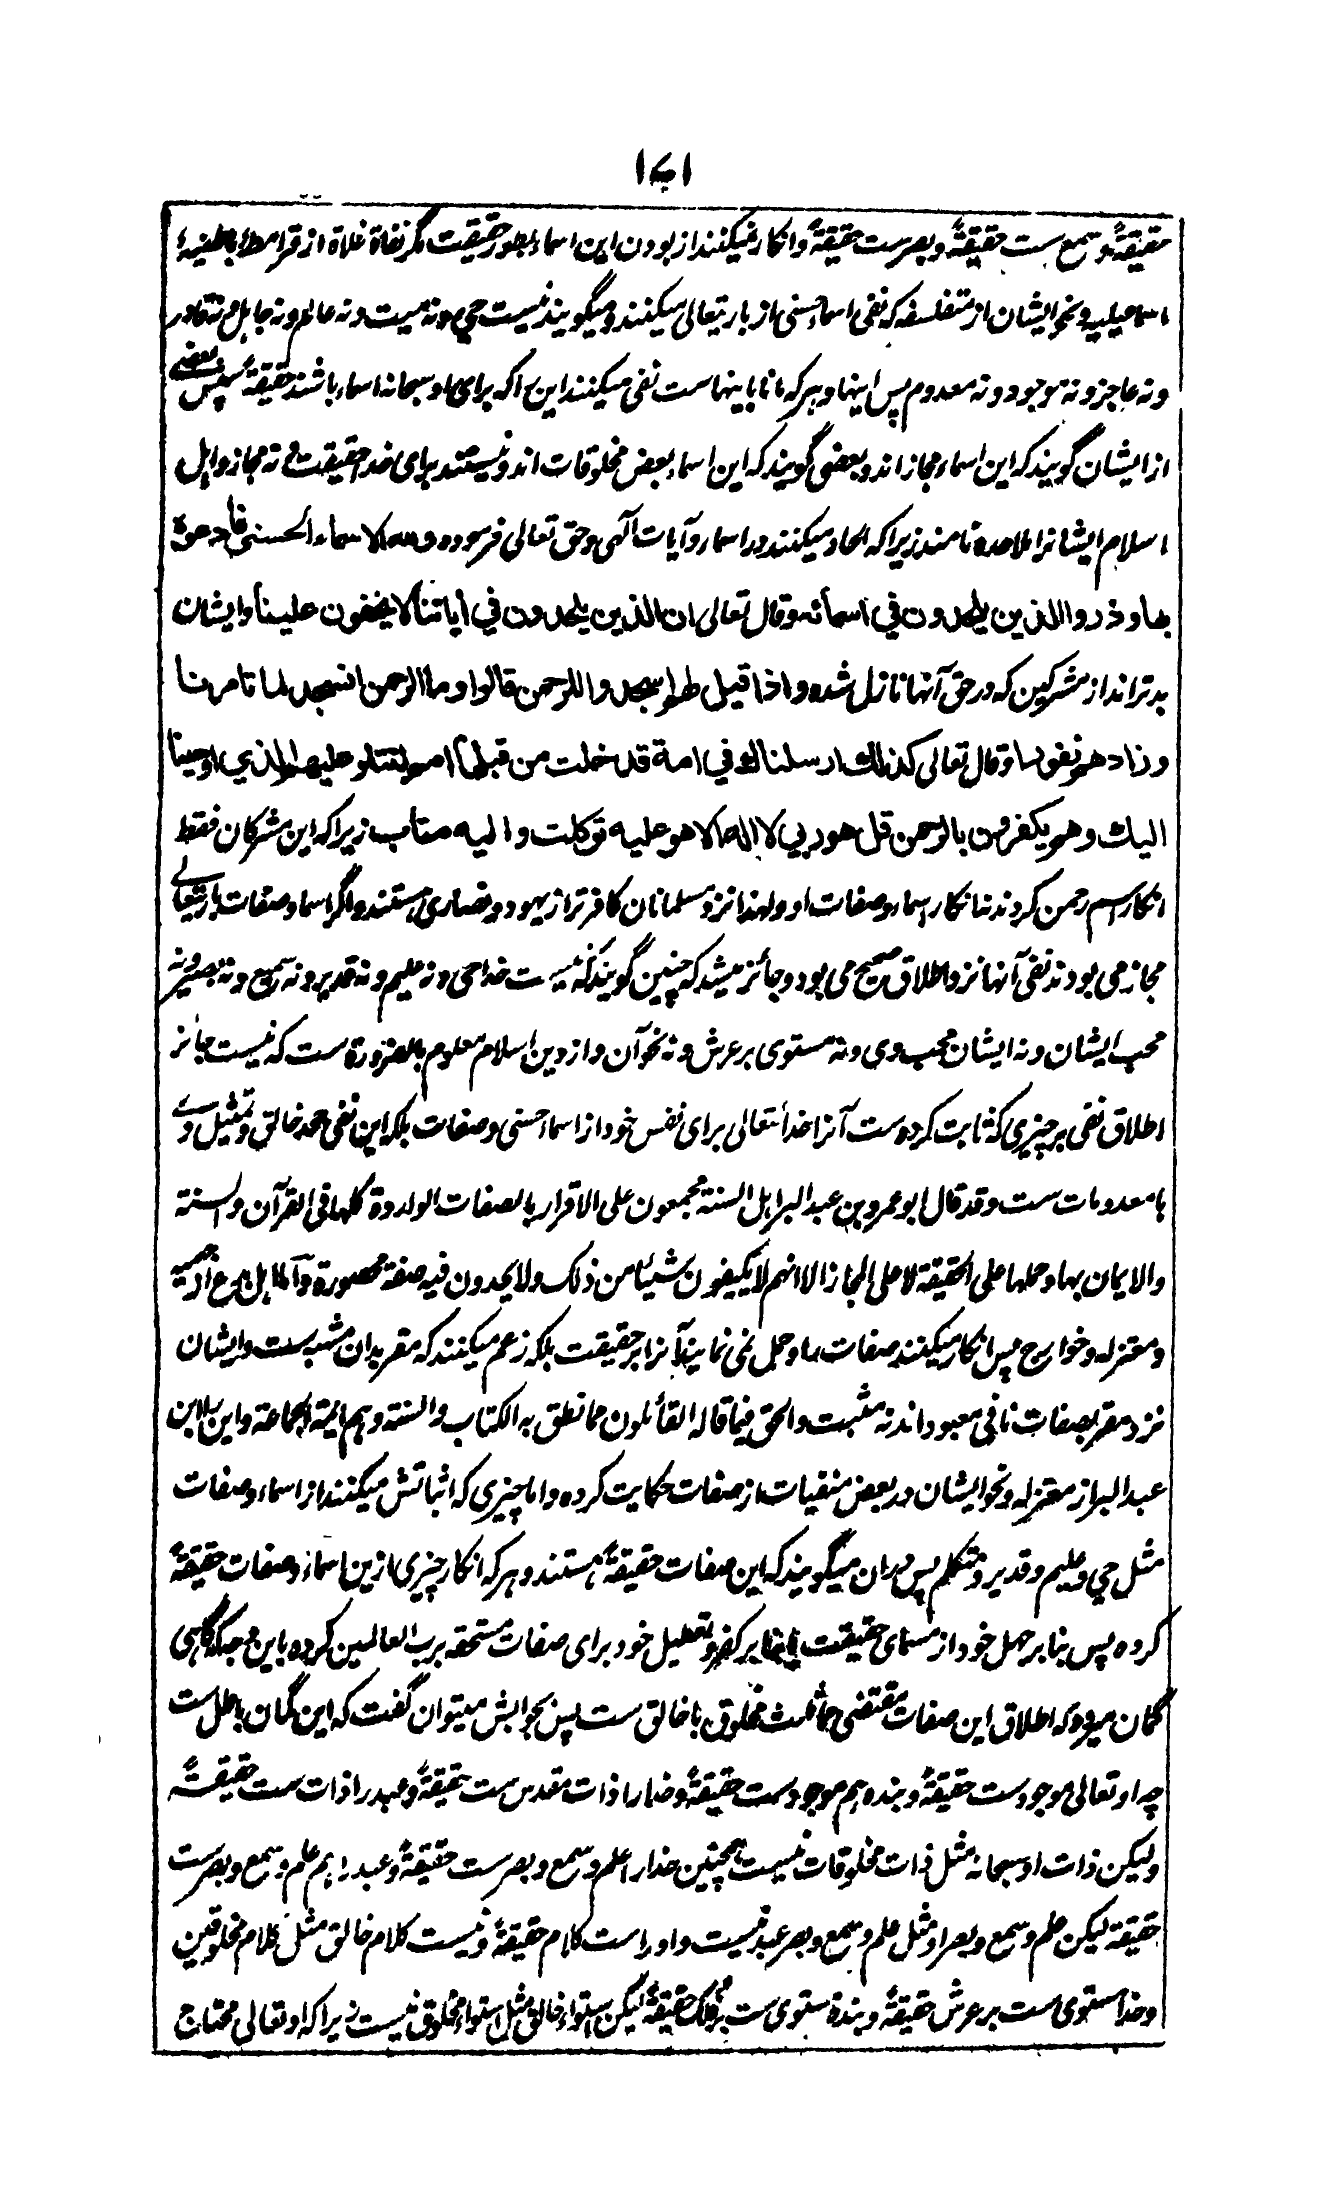 ۱۷۱
حقیقةً و سمیع ست حقیقةً و بصیرست حقیقةً و انکار نمیکنند از بودن این اسماء بطور حقیقت مگر نفاة غلاة از قرامطهٔ باطنیهٔ
اسماعیلیه و نحو ایشان از متفلسفه که نفی اسماء حسنی از باریتعالی میکنند و میگویند نیست حی و نه میت و نه عالم و نه جاہل و نه قادر
و نه عاجز و نه موجود و نه معدوم پس اینها و ہر که مانا باینهاست نفی میکنند این را که برای او سبحانه اسماء باشند حقیقةً سپس بعضے
از ایشان گویند که این اسماء مجاز اند و بعضی گویند که این اسماء بعض مخلوقات اند و نیستند برای خدا حقیقت و نه مجاز و اہل
اسلام ایشانرا ملاحده نامند زیرا که الحاد میکنند در اسماء و آیات الٰهی و حق تعالی فرموده و لله الاسماء الحسنی فادعوه
بها و ذروا الذین یلحدون فی اسمائه و قال تعالی ان الذین یلحدون فی أیاتنا لا یخفون علینا و ایشان
بدتر اند از مشرکین که در حق آنها نازل شده و اذا قیل لهم اسجدوا للرحمن قالوا وما الرحمن انسجد لما تامرنا
و زادهم نفورا و قال تعالی کذلك ارسلناك فی امة قد خلت من قبلها امم لتتلو علیهم الذی اوحینا
الیك وهم یکفرون بالرحمن قل هو ربی لا اله الا هو علیه توکلت و الیه متاب زیرا که این مشرکان فقط
انکار اسم رحمن کردند نه انکار اسماء و صفات او و لهذا نزد مسلمانان کافرتر از یهود و نصاری ہستند و اگر اسما و صفات باریتعالے
مجاز می بودند نفی آنها نزد اطلاق صحیح می بود و جائز میشد که چنین گویند که نیست خدا حی و نه علیم و نه قدیر و نه سمیع و نه بصیر و نه
محب ایشان و نه ایشان محب وی و نه مستوی بر عرش و نه نحو آن و از دین اسلام معلوم بالضرورة ست که نیست جائز
اطلاق نفی بر چیزی که ثابت کرده ست آنرا خدأتعالی برای نفس خود از اسماء حسنی و صفات بلکه این نفی جحد خالق و تمثیل وے
با معدومات ست و قد قال ابو عمرو بن عبد البر اہل السنة مجمعون علی الاقرار بالصفات الواردة کلها فی القرآن و السنة
و الایمان بها و حملها علی الحقیقة لا علی المجاز الا انهم لا یکیفون شیئا من ذلک و لا یحدون فیه صفة محصورة و اما اہل بدع از جهمیه
و معتزله و خوارج پس انکار میکنند صفات را و حمل نمی نمایند آنرا بر حقیقت بلکه زعم میکنند که مقر بدان مشبه ست و ایشان
نزد مقر بصفات نافی معبود اند نه مثبت و الحق فیما قاله القائلون مما نطق به الکتاب و السنة و هم ایمة الجماعة و این را ابن
عبد البر از معتزله و نحو ایشان در بعض منفیات از صفات حکایت کرده و اما چیزی که اثباتش میکنند از اسماء و صفات
مثل حی و علیم و قدیر و متکلم پس بدان میگویند که این صفات حقیقةً ہستند و ہر که انکار چیزی ازین اسماء و صفات حقیقةً
کرده پس بنا بر جهل خود از مسمای حقیقت یا بنا بر کفر و تعطیل خود برای صفات مستحقه برب العالمین کرده باین وجه که گاہی
گمان میرود که اطلاق این صفات مقتضی مماثلت مخلوق با خالق ست پس بجوابش میتوان گفت که این گمان باطل ست
چه او تعالی موجودست حقیقةً و بنده ہم موجودست حقیقةً و خدا را ذات مقدس ست حقیقةً و عبد را ذات ست حقیقةً
و لیکن ذات او سبحانه مثل ذات مخلوقات نیست ہمچنین خدا را علم و سمع و بصرست حقیقةً و عبد را ہم علم و سمع و بصرست
حقیقة لیکن علم و سمع و بصر او مثل علم و سمع و بصر عبد نیست و او راست کلام حقیقةً و نیست کلام خالق مثل کلام مخلوقین
و خدا مستوی ست بر عرش حقیقةً و بنده مستوی ست بر فلک حقیقةً لیکن استواء خالق مثل استواء مخلوق نیست زیرا که او تعالی محتاج